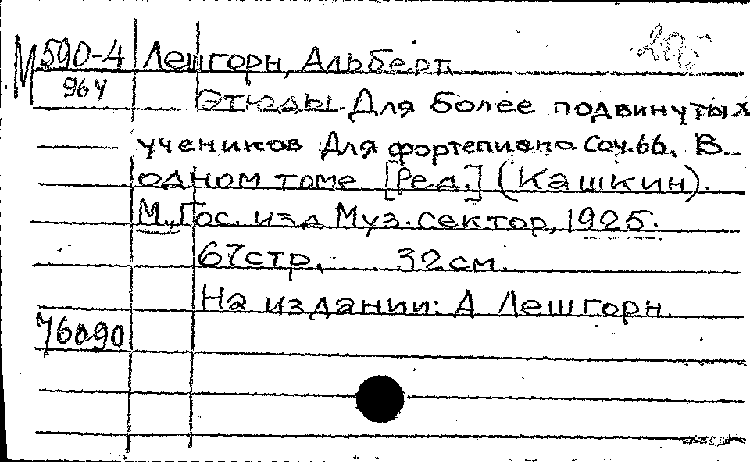 М 590-4 Лешгорн, Альберт
964
Этюды. Для более подвинутых
учеников Для фортепиано Соч.66. В
одном томе [Ред.] (Кашкин).
М., Гос. изд Муз. сектор, 1925.
67стр. 32см.
На издании: А Лешгорн
76090